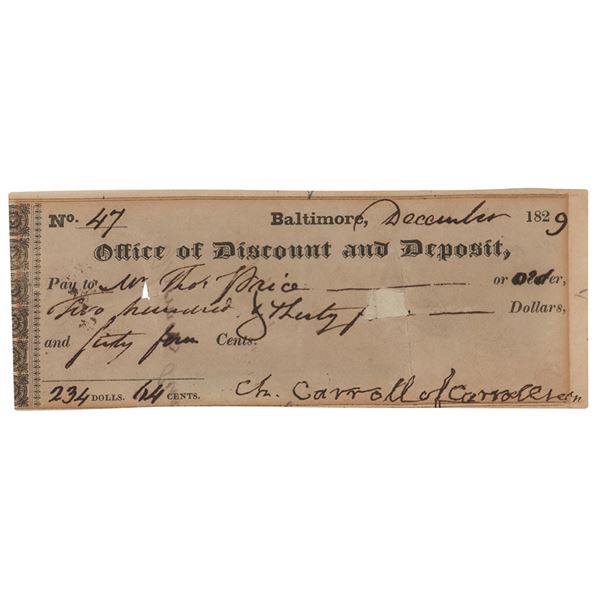 No. 47 Baltimore, December 1829
Office of Discount and Deposit,
Pay to Mr Thos Price or Order,
Two hundred & Thirty Dollars,
and sixty four Cents.
234 DOLLS. 64 CENTS. Ch. Carroll of Carrollton